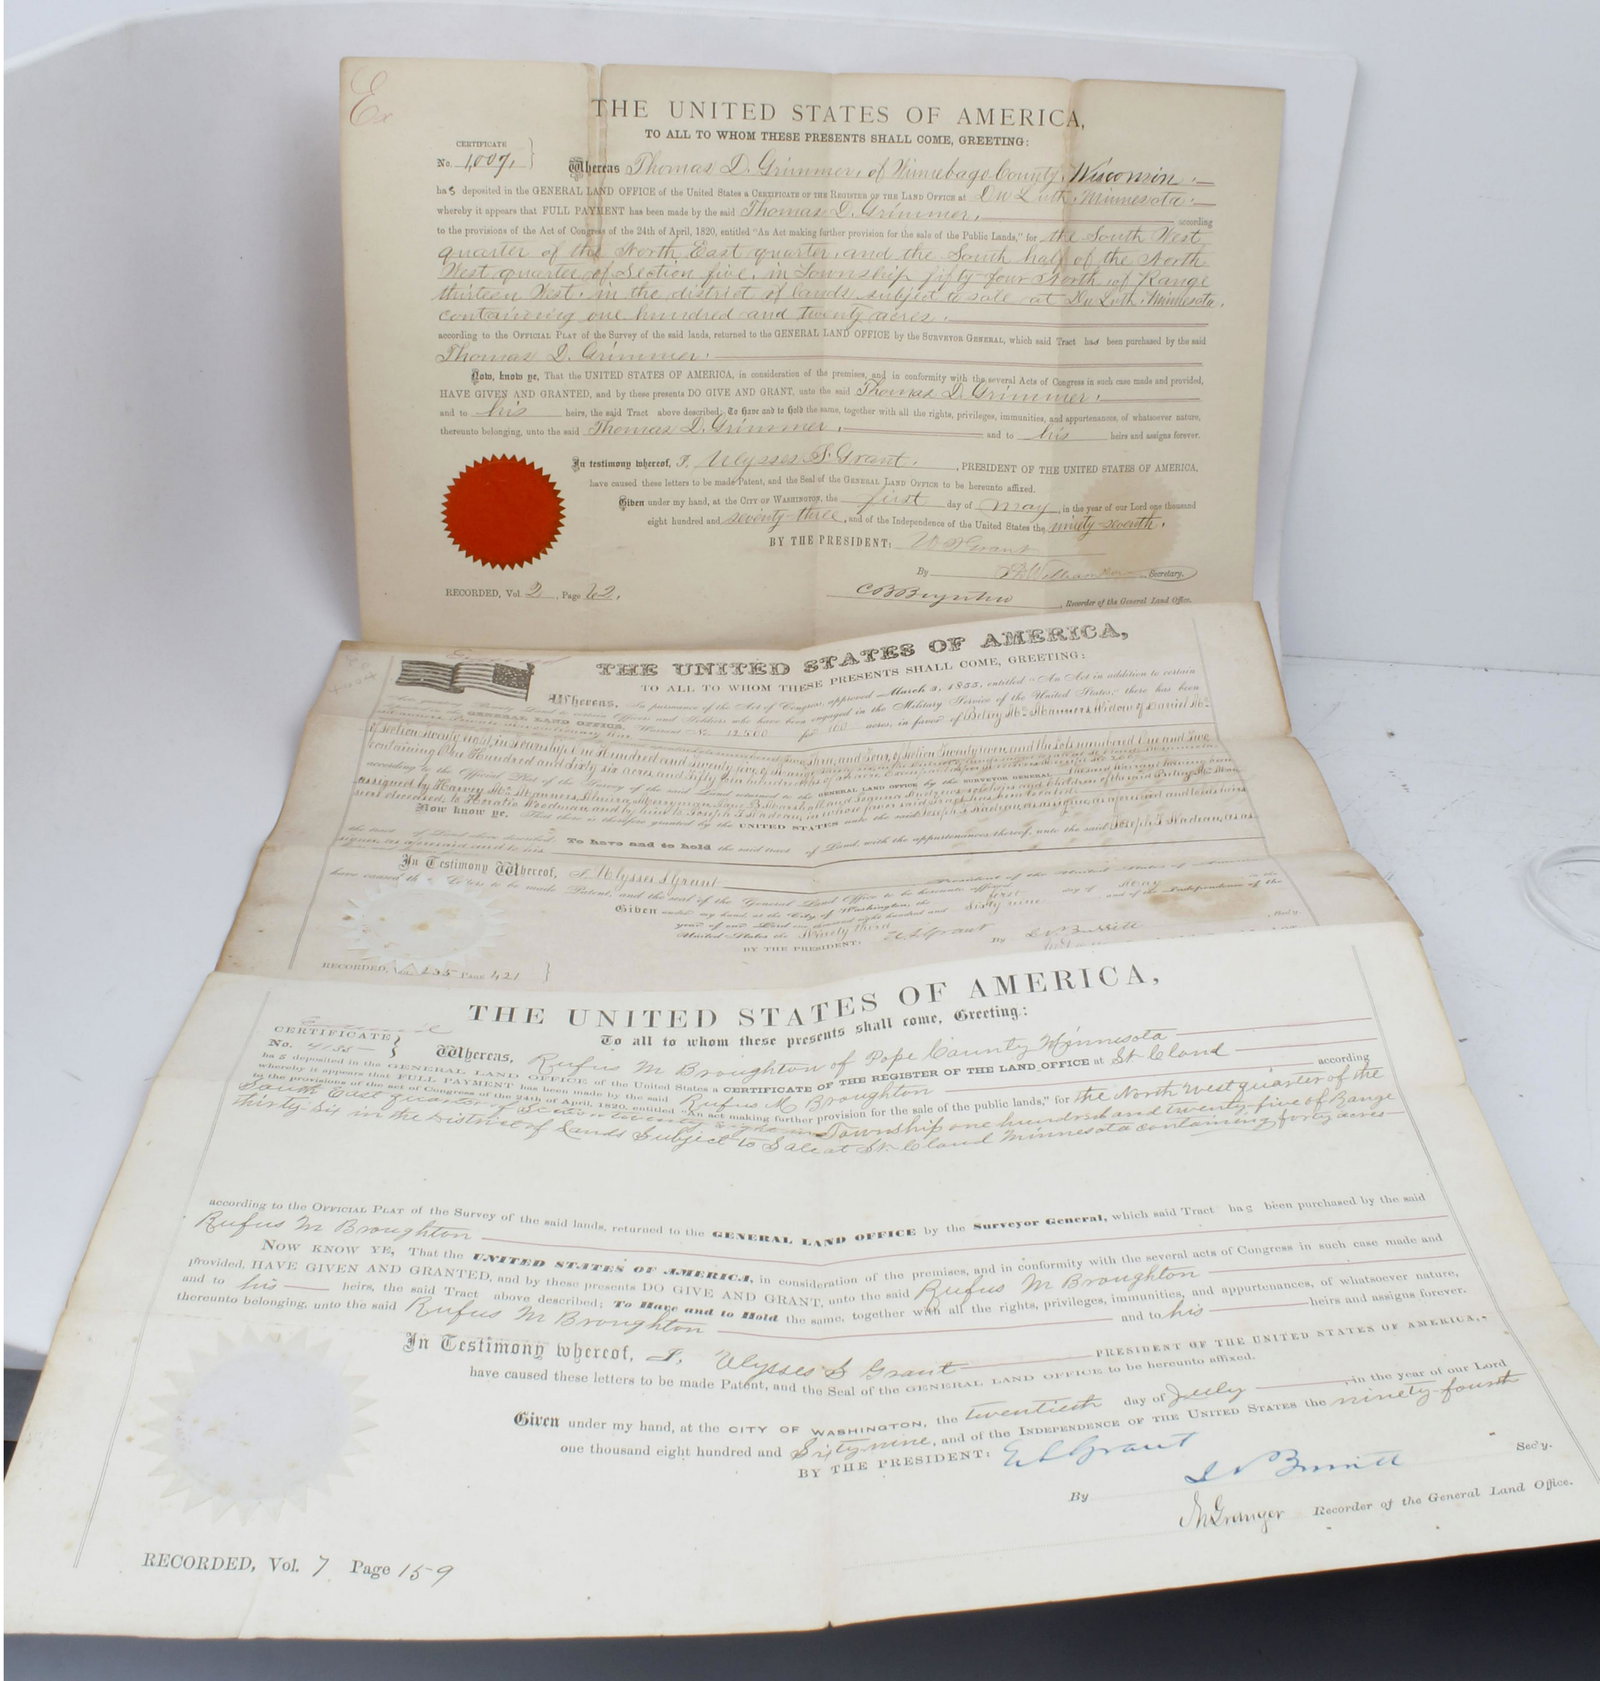 Ex
THE UNITED STATES OF AMERICA,
TO ALL TO WHOM THESE PRESENTS SHALL COME, GREETING:
CERTIFICATE
No. 1,007,
Whereas Thomas D. Grimmer, of Winnebago County, Wisconsin.
has deposited in the GENERAL LAND OFFICE of the United States a CERTIFICATE OF THE REGISTER OF THE LAND OFFICE at Du Luth, Minnesota.
whereby it appears that FULL PAYMENT has been made by the said Thomas D. Grimmer, according
to the provisions of the Act of Congress of the 24th of April, 1820, entitled "An Act making further provision for the sale of the Public Lands," for the South West
quarter of the North East quarter, and the South half of the North
West quarter of Section five, in Township fifty-four North of Range
thirteen West, in the district of lands subject to sale at Du Luth, Minnesota,
containing one hundred and twenty acres.
according to the OFFICIAL PLAT of the Survey of the said lands, returned to the GENERAL LAND OFFICE by the SURVEYOR GENERAL, which said Tract has been purchased by the said
Thomas D. Grimmer.
Now, know ye, That the UNITED STATES OF AMERICA, in consideration of the premises, and in conformity with the several Acts of Congress in such case made and provided,
HAVE GIVEN AND GRANTED, and by these presents DO GIVE AND GRANT, unto the said Thomas D. Grimmer.
and to his heirs, the said Tract above described; To Have and to Hold the same, together with all the rights, privileges, immunities, and appurtenances, of whatsoever nature,
thereunto belonging, unto the said Thomas D. Grimmer, and to his heirs and assigns forever.
In testimony whereof, I, Ulysses S. Grant, PRESIDENT OF THE UNITED STATES OF AMERICA,
have caused these letters to be made Patent, and the Seal of the GENERAL LAND OFFICE to be hereunto affixed.
Given under my hand, at the CITY OF WASHINGTON, the first day of May, in the year of our Lord one thousand
eight hundred and seventy-three, and of the Independence of the United States the ninety-seventh.
BY THE PRESIDENT: U S Grant
By Secretary.
RECORDED, Vol. 2, Page 62.
Recorder of the General Land Office.
THE UNITED STATES OF AMERICA,
TO ALL TO WHOM THESE PRESENTS SHALL COME, GREETING:
Whereas, In pursuance of the Act of Congress, approved March 3, 1855, entitled "An Act in addition to certain
Acts granting Bounty Land to certain Officers and Soldiers who have been engaged in the Military Service of the United States," there has been
GENERAL LAND OFFICE, Warrant No. 12500 for 160 acres, in favor of Betsey McManners, Widow of Daniel Mc
numbered Two, Three, and Four, of Section Twenty seven, and the Lots numbered One and Two
of Section Twenty eight, in Township One Hundred and Twenty five, of Range
containing One Hundred and Sixty six acres, and Fifty
according to the Official Plat of the Survey of the said Land returned to the GENERAL LAND OFFICE by the SURVEYOR GENERAL the said Warrant having been
assigned by Harvey McManners, and children of the said Betsey McMan
ners deceased, to Horatio Woodman and by him to Joseph in whose favor said
Now know ye, That there is therefore granted by the UNITED STATES unto the said Joseph as assignee as aforesaid and to his heirs
the tract of Land above described; To have and to hold the said tract of Land, with the appurtenances thereof, unto the said Joseph as as
signee as aforesaid and to his
In Testimony Whereof, I, Ulysses S Grant President of the United States of America
have caused these Letters to be made Patent, and the seal of the General Land Office to be hereunto affixed.
Given under my hand, at the City of Washington, the first day of May in the
year of our Lord one thousand eight hundred and Sixty nine and of the Independence of the
United States the Ninety third
BY THE PRESIDENT: U S Grant
By Sec'y.
RECORDED, Vol. 235 Page 421
THE UNITED STATES OF AMERICA,
To all to whom these presents shall come, Greeting:
CERTIFICATE
No. 4155
Whereas, Rufus M Broughton of Pope County Minnesota
has deposited in the GENERAL LAND OFFICE of the United States a CERTIFICATE OF THE REGISTER OF THE LAND OFFICE at St. Cloud
whereby it appears that FULL PAYMENT has been made by the said Rufus M Broughton according
to the provisions of the act of Congress of the 24th of April, 1820, entitled "An act making further provision for the sale of the public lands," for the North West quarter of the
South East quarter of Section twenty eight in Township one hundred and twenty-five of Range
thirty-six in the District of Lands Subject to Sale at St. Cloud Minnesota containing forty acres
according to the OFFICIAL PLAT of the Survey of the said lands, returned to the GENERAL LAND OFFICE by the Surveyor General, which said Tract has been purchased by the said
Rufus M Broughton
NOW KNOW YE, That the UNITED STATES OF AMERICA, in consideration of the premises, and in conformity with the several acts of Congress in such case made and
provided, HAVE GIVEN AND GRANTED, and by these presents DO GIVE AND GRANT, unto the said Rufus M Broughton
and to his heirs, the said Tract above described; To Have and to Hold the same, together with all the rights, privileges, immunities, and appurtenances, of whatsoever nature,
thereunto belonging, unto the said Rufus M Broughton and to his heirs and assigns forever.
In Testimony whereof, I, Ulysses S Grant PRESIDENT OF THE UNITED STATES OF AMERICA,
have caused these letters to be made Patent, and the Seal of the GENERAL LAND OFFICE to be hereunto affixed.
Given under my hand, at the CITY OF WASHINGTON, the twentieth day of July, in the year of our Lord
one thousand eight hundred and Sixty nine, and of the INDEPENDENCE OF THE UNITED STATES the ninety-fourth
BY THE PRESIDENT: U S Grant
By Sec'y.
Granger Recorder of the General Land Office.
RECORDED, Vol. 7 Page 159